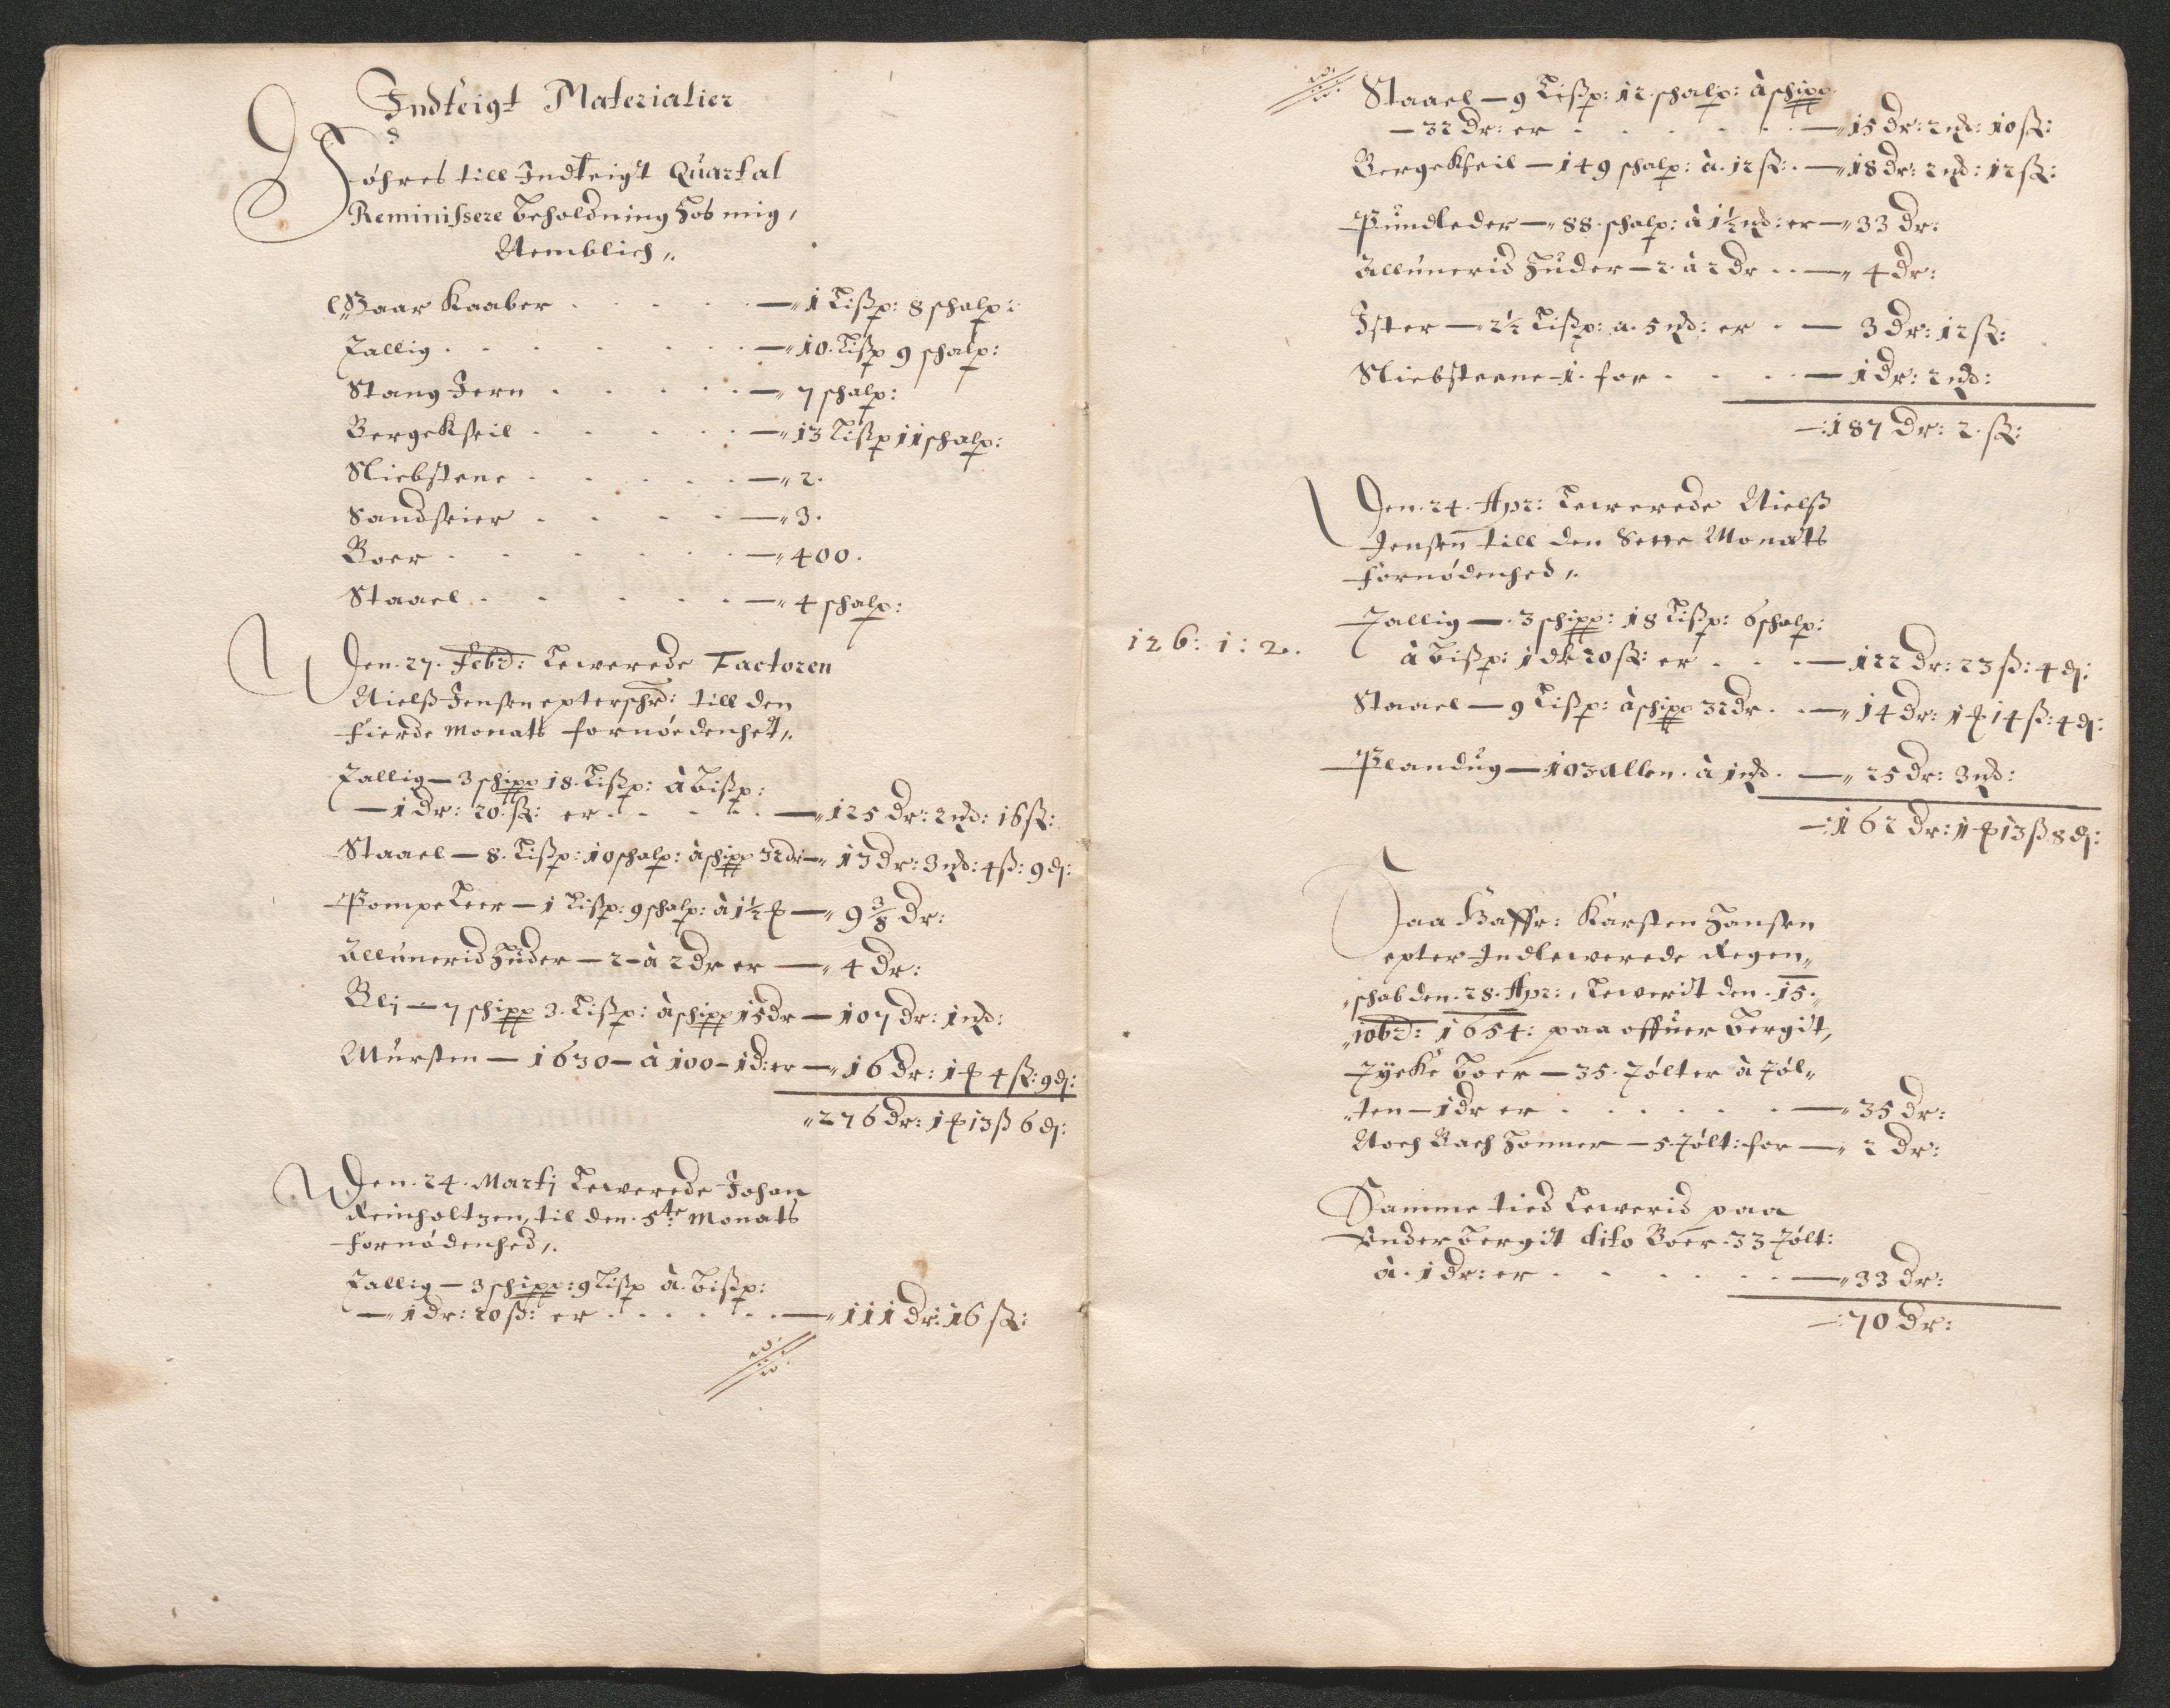 Indteigt Materialier
Föhres till Indteigt Quartal
Reminissere Beholdning hos mig,
Nemblich,,
Gaar Kaaber . . . . . —,, 1 Lißp: 8 schalp:
Tallig . . . . . . —,, 10. Lißp 9 schalp:
Stang Jern . . . . . —,, 7 schalp:
Bergekseil . . . . . —,, 13 Lißp 11 schalp:
Sliebstene . . . . . —,, 2.
Sandseier . . . . —,, 3.
Boer . . . . . . —,, 400.
Staael . . . . . —,, 4 schalp:
Den. 27. Febr: Lewerede Factoren
Nielß Jensen epterschr: till den
Fierde Monats fornøedenhet,.
Tallig — 3 schipp 18. Lißp: à Lißp:
— 1 dr: 20. ß: er . . . . —,, 125 dr: 2 md: 16 ß:
Staael — 8. Lißp: 10 schalp: à schipp 32 dr —,, 13 dr: 3 md: 4 ß: 9 d:
Pompe Leer — 1 Lißp: 9 schalp: à 1½ ƒ —,, 9 3/8 dr:
Allunerid Huder — 2 — à 2 dr er —,, 4 dr:
Blj — 7 schipp 3. Lißp: à schipp 15 dr — 107 dr: 1 md:
Mursten — 1630 — à 100 — 1 d: er —,, 16 dr: 1 ƒ 4 ß: 9 d:
,, 276 dr: 1 ƒ 13 ß 6 d:
Den. 24. Martj Lewerede Johan
Reinholtzen, til den. 5te Monats
fornødenhed,.
Tallig — 3 schipp: 9 Lißp à. Lißp:
— 1 dr: 20 ß: er . . . . . —,, 111 dr: 16 ß:
Staael — 9 Lißp: 12. schalp: à schipp
— 32 dr: er . . . . . —,, 15 dr: 2 md: 10 ß:
Bergekseil — 149 schalp: à. 12 ß: . —,, 18 dr: 2 md: 12 ß:
Pundleder —,, 88. schalp: à 1½ md: er —,, 33 dr:
Allunerid Huder — 2. à 2 dr . . —,, 4 dr:
Ister — 2½ Lißp: a. 5 md: er . — 3 dr: 12 ß:
Sliebsteene — 1. for . . . . — 1 dr: 2 md:
—: 187 dr: 2. ß:
Den. 24. Apr: Lewerede Nielß
Jensen till den Sette Monats
fornødenhed,.
Tallig —. 3 schipp: 18 Lißp: 6 schalp:
126: 1: 2.
à Lißp: 1 dr 20 ß: er . . . — 122 dr: 23 ß: 4 d:
Staael — 9 Lißp: à schipp 32 dr . . —,, 14 dr: 1 ƒ 14 ß: 4 d:
Plandug — 103 allen. à 1 md. —,, 25 dr: 3 md:
—: 162 dr: 1 ƒ 13 ß 8 d:
Karsten Hansen
epter Indlewerede Regen,,
,, schab den. 28. Apr:, Lewerit den. 15.
,, 10br: 1654: paa offuer Bergit,
Tycke Boer — 35. Tølter à Tøl,,
,, ten — 1 dr er . . . . . . —,, 35 dr:
Noch Bach Honner — 5. Tølt: for —,, 2 dr:
Samme tied Lewerid paa
Under Bergit dito Boer. 33 Tølt:
à. 1 dr: er . . . . . . —,, 33 dr:
—: 70 dr: